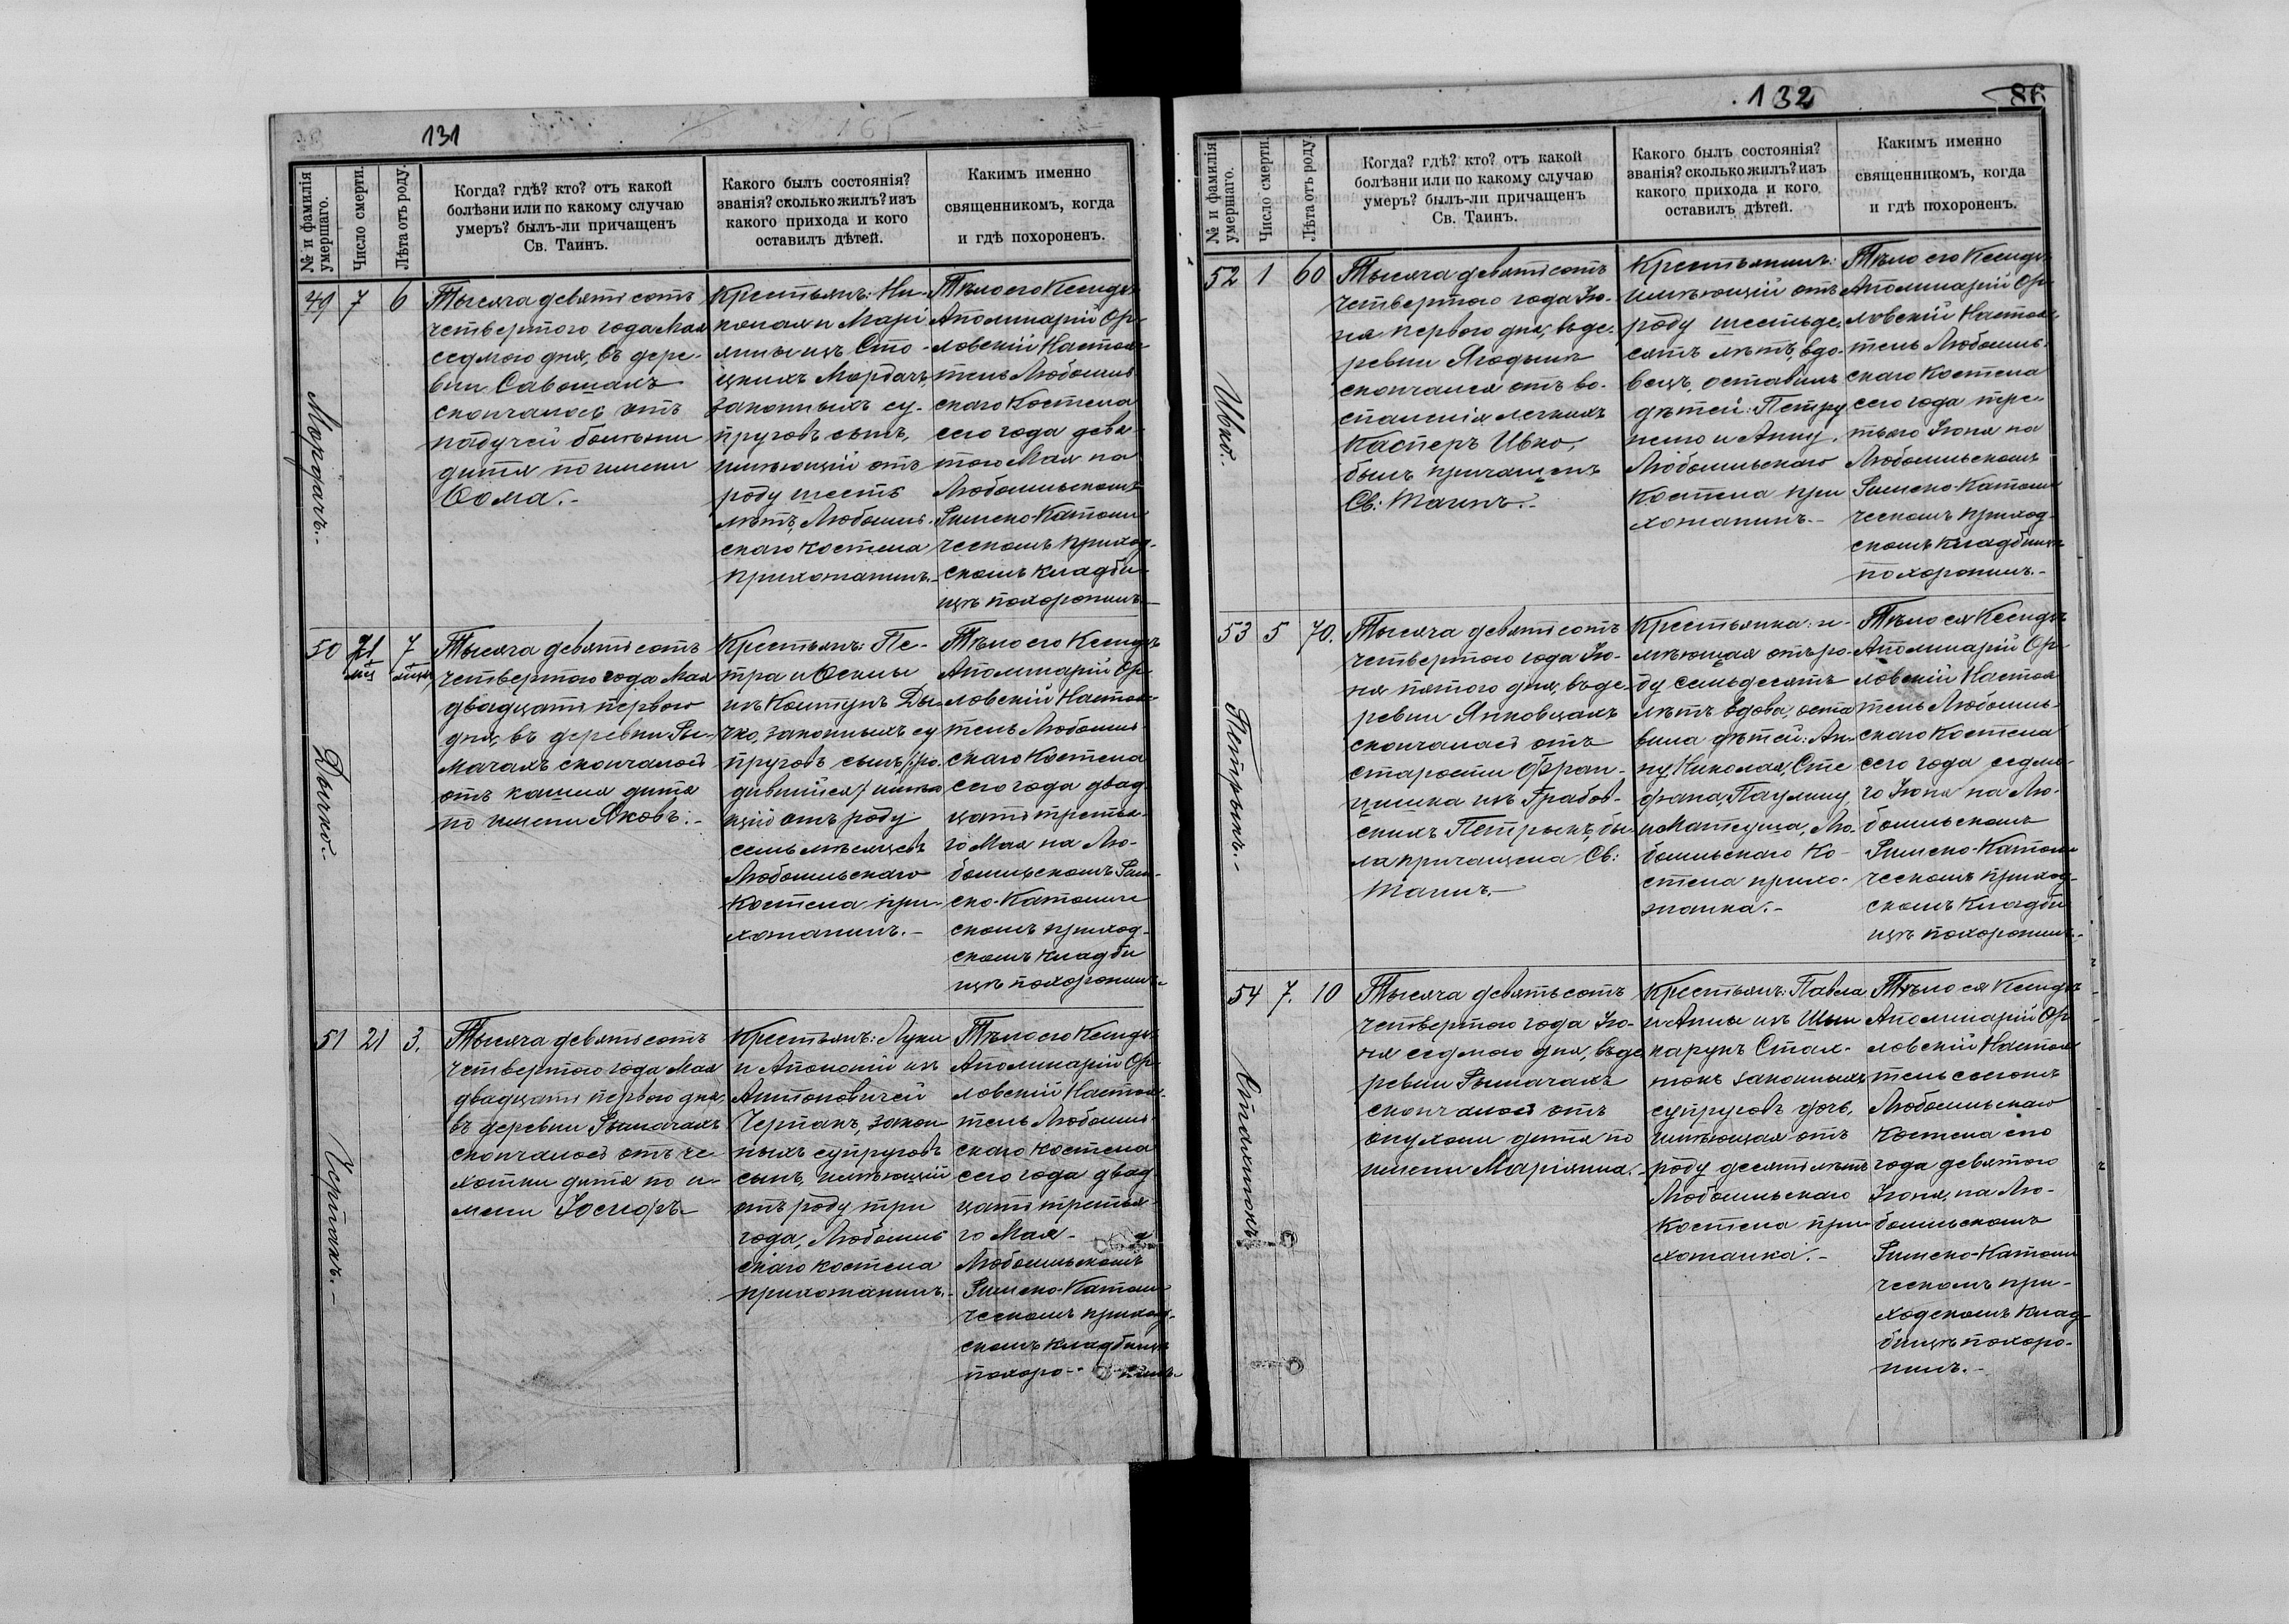 131
№ и фамилія умершаго.
Число смерти.
Лѣта отъ роду.
Когда? гдѣ? кто? отъ какой
болѣзни или по какому случаю
умеръ? былъ-ли причащенъ
Св. Таинъ.
Какого былъ состоянія?
званія? сколько жилъ? изъ
какого прихода и кого
оставилъ дѣтей.
Какимъ именно
священникомъ, когда
и гдѣ похороненъ.
49 7 6
Мордачъ.-
Тысяча девятьсотъ
четвертого года Мая
седмого дня, въ дере-
вни Савошахъ
скончалось отъ
падучей болѣзни
дитя по имени
Ѳома.-
Крестьянъ: Ни-
колая и Марі
янны изъ Сто-
цкихъ Мордачъ
законныхъ су-
пруговъ сынъ,
имѣющій отъ
роду шесть
лѣтъ, Любомль-
скаго костела
прихожанинъ.-
Тѣло его Ксендзъ
Аполинарій Ор-
ловскій Настоя-
тель Любомль-
скаго Костела
сего года девя-
того Мая на
Любомльскомъ
Римско-Католи
ческомъ приход-
скомъ кладби-
щѣ похоронилъ.-
50 21 7
мца
Дычко.-
Тысяча девятьсотъ
четвертого года Мая
двадцать первого
дня, въ деревни Ры-
мачахъ скончалось
отъ кашля дитя
по имени Яковъ.-
Крестьянъ: Пе-
тра и Ѳеклы
изъ Коштунъ Ды-
чко, законныхъ су
пруговъ сынъ, /ро-
дившійся/ имѣю
щій отъ роду
семь мѣсяцевъ
Любомльскаго
Костела при-
хожанинъ.-
Тѣло его Ксендзъ
Аполинарій Ор-
ловскій Настоя-
тель Любомль-
скаго Костела
сего года двад
цать третья-
го Мая на Лю-
бомльскомъ Рим-
ско-Католиче
скомъ приход-
скомъ кладби
щѣ похоронилъ.-
51 21 3.
Черпакъ.-
Тысяча девятьсотъ
четвертого года Мая
двадцать первого дня,
въ деревни Рымачахъ
скончалось отъ че
хотки дитя по и-
мени Іосифъ.-
Крестьянъ: Луки
и Аполоніи изъ
Антоновичей
Черпакъ, закон
ныхъ супруговъ
сынъ, имѣющій
отъ роду три
года, Любомль
скаго костела
прихожанинъ.-
Тѣло его Ксендзъ
Аполинарій Ор-
ловскій Настоя-
тель Любомль-
скаго костела
сего года двад
цать третья-
го Мая - на
Любомльскомъ
Римско-Католи
ческомъ приход-
скомъ кладбищѣ
похоро-- нилъ.-
132
86
№ и фамилія умершаго.
Число смерти.
Лѣта отъ роду.
Когда? гдѣ? кто? отъ какой
болѣзни или по какому случаю
умеръ? былъ-ли причащенъ
Св. Таинъ.
Какого былъ состоянія?
званія? сколько жилъ? изъ
какого прихода и кого
оставилъ дѣтей.
Какимъ именно
священникомъ, когда
и гдѣ похороненъ.
52 1 60
Ивко.-
Тысяча девятьсотъ
четвертого года Ію-
ня первого дня, въ де-
ревни Ягодынѣ
скончался отъ во-
спаленія легкихъ
Касперъ Ивко,
былъ причащенъ
Св: Таинъ.-
Крестьянинъ:
имѣющій отъ
роду шестьде-
сятъ лѣтъ, вдо-
вецъ, оставилъ
дѣтей: Петру
нелю и Анну.
Любомльскаго
Костела при
хожанинъ.-
Тѣло его Ксендзъ
Аполинарій Ор-
ловскій Настоя-
тель Любомль-
скаго Костела
сего года тре-
тьяго Іюня на
Любомльскомъ
Римско-Католи
ческомъ приход-
скомъ кладбищѣ
похоронилъ.-
53 5 70.
Петрыкъ.-
Тысяча девятьсотъ
четвертого года Ію-
ня пятого дня, въ де-
ревни Янковцахъ
скончалась отъ
старости Фран-
цишка изъ Грабов-
скихъ Петрыкъ, бы-
ла причащена Св:
Таинъ.-
Крестьянка: и-
мѣющая отъ ро-
ду семьдесятъ
лѣтъ вдова, оста
вила дѣтей: Ан-
ну, Николая, Сте
фана, Паулину
и Матеуша, Лю-
бомльскаго Ко-
стела прихо-
жанка.-
Тѣло ея Ксендзъ
Аполинарій Ор-
ловскій Настоя
тель Любомль-
скаго Костела
сего года седмо-
го Іюня на Лю-
бомльскомъ
Римско-Католи
ческомъ приход-
скомъ кладби
щѣ похоронилъ.-
54 7. 10
Стахнюкъ
Тысяча девятьсотъ
четвертого года Ію-
ня седмого дня, въ де
ревни Рымачахъ
скончалось отъ
опухоли дитя по
имени Маріянна.-
Крестьянъ: Павла
и Анны изъ
карукъ Стах-
нюкъ законныхъ
супруговъ дочь,
имѣющая отъ
роду десять лѣтъ
Любомльскаго
Костела при-
хожанка.-
Тѣло ея Ксендзъ
Аполинарій Ор
ловскій Настоя
тель
Любомльскаго
Костела сего
года девятого
Іюня, на Лю-
бомльскомъ
Римско-Католи
ческомъ при-
ходскомъ клад-
бищѣ похоро-
нилъ.-